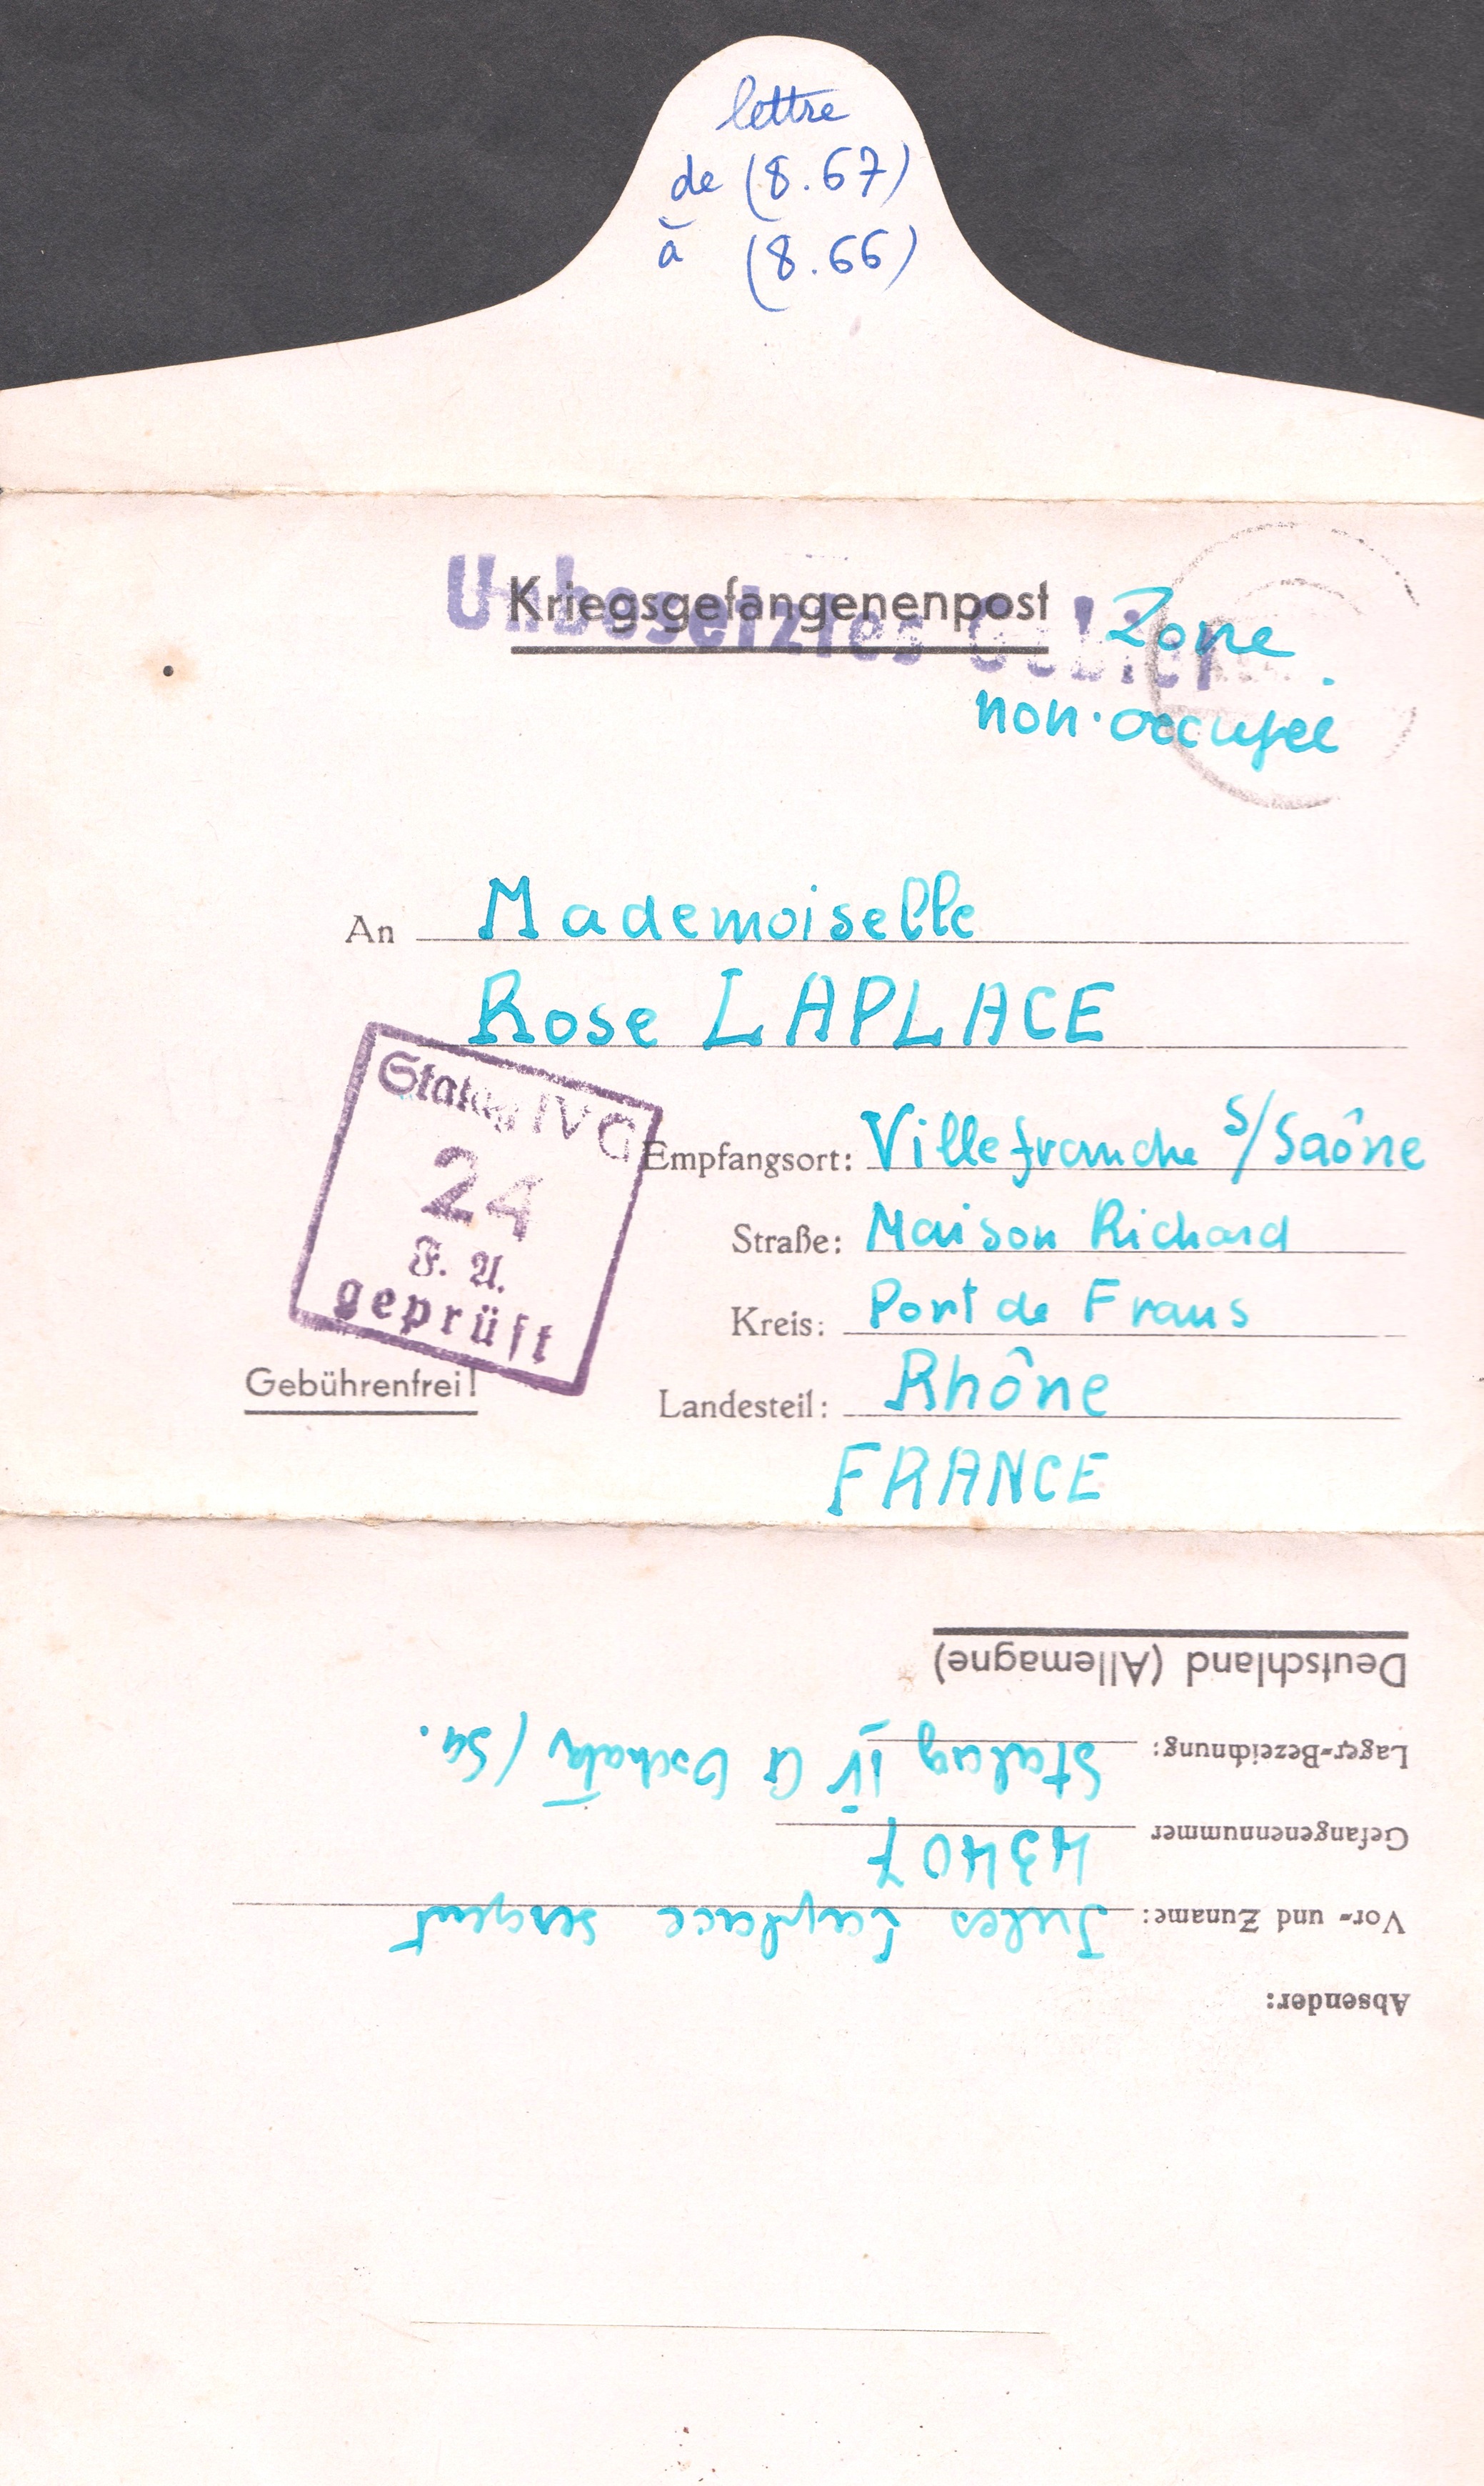 lettre
de (8.67)
à (8.66)
Unbesetztes Gebiet
Kriegsgefangenenpost
Zone
non-occupée
An Mademoiselle
Rose LAPLACE
Stalag IV G
24
F. A.
geprüft
Empfangsort: Villefranche s/Saône
Straße: Maison Richard
Kreis: Port de Frans
Gebührenfrei!
Landesteil: Rhône
FRANCE
Absender:
Vor- und Zuname: Jules Laplace sergent
Gefangenennummer 43407
Lager-Bezeichnung: Stalag IV G Oschatz / Sa.
Deutschland (Allemagne)